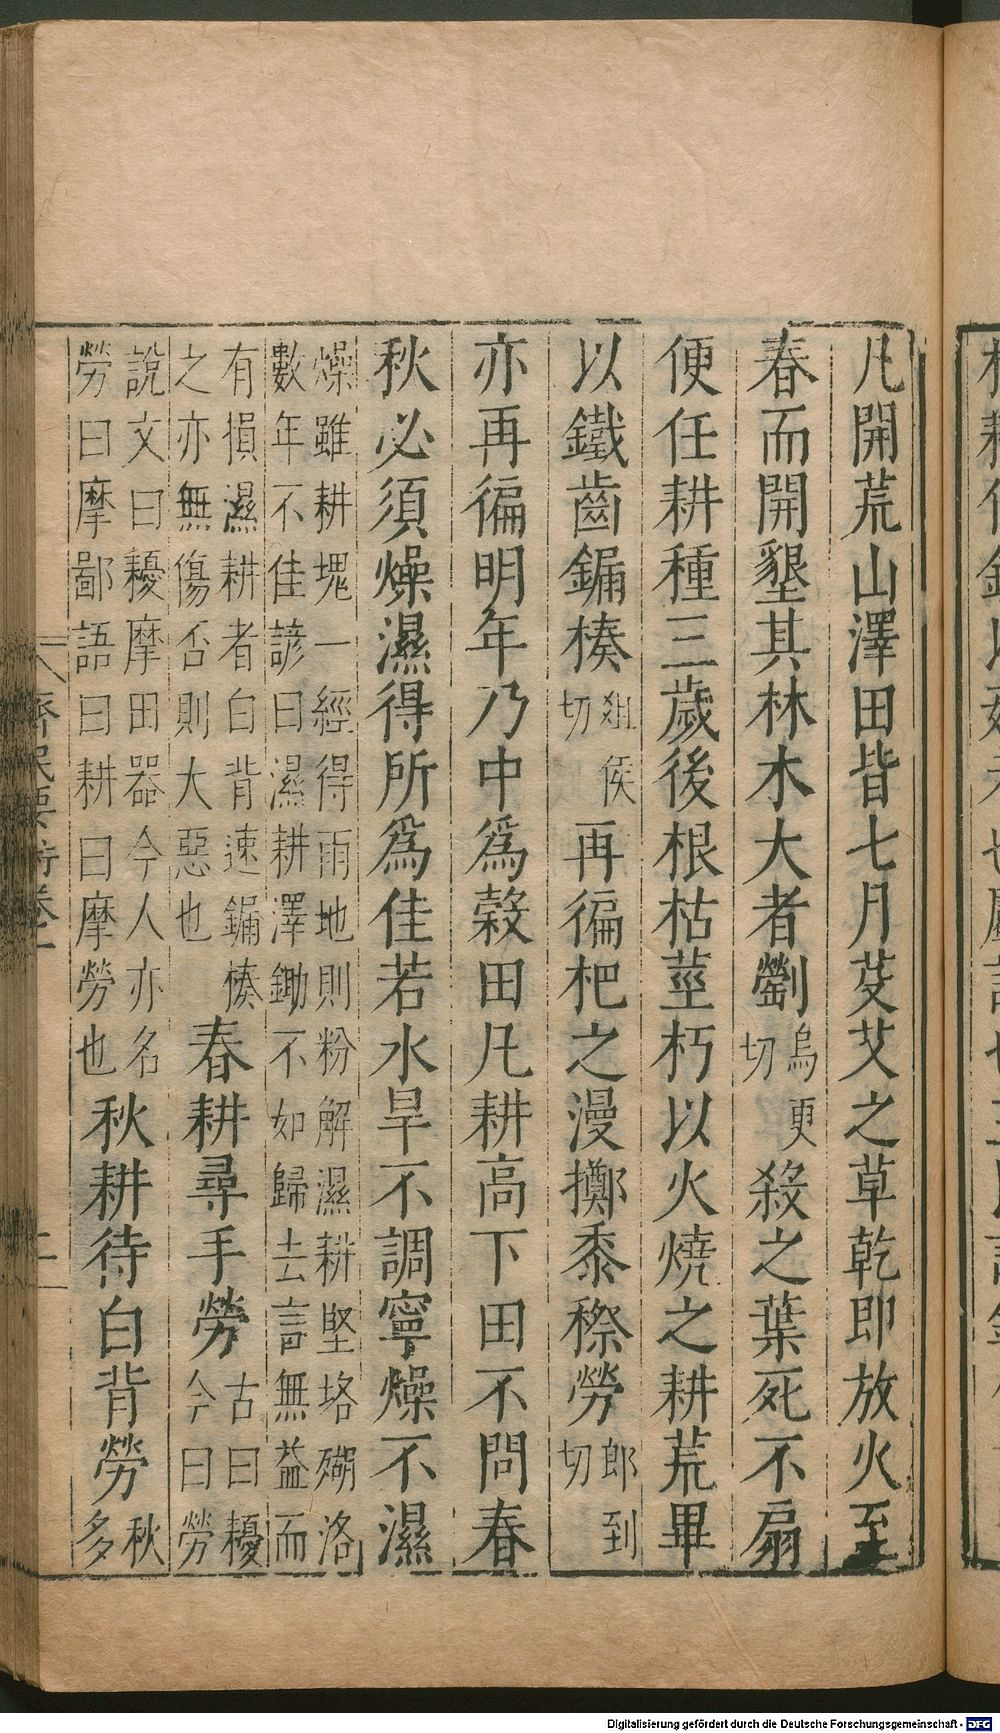 凡開荒山澤田皆七月芟艾之草乾即放火至
春而開墾其林木大者劉烏更切殺之葉死不扇
便任耕種三歲後根枯莖朽以火燒之耕荒畢
以鐵齒𨫒楱俎侯切再徧杷之漫擲黍穄勞郎到切
亦再徧明年乃中為榖田凡耕高下田不問春
秋必須燥濕得所為佳若水旱不調寧燥不濕
燥雖耕塊一經得雨地則粉解濕耕堅垎
數年不佳諺曰濕耕澤鋤不如歸去言無益而
有損濕耕者白背速𨫒楱
之亦無傷否則大惡也
春耕尋手勞
古曰耰
今曰勞
說文曰耰摩田器今人亦名
勞曰摩鄙語曰耕曰摩勞也
秋耕待白背勞
秋
多
齊民要術卷一
二
Digitalisierung gefördert durch die Deutsche Forschungsgemeinschaft - DFG